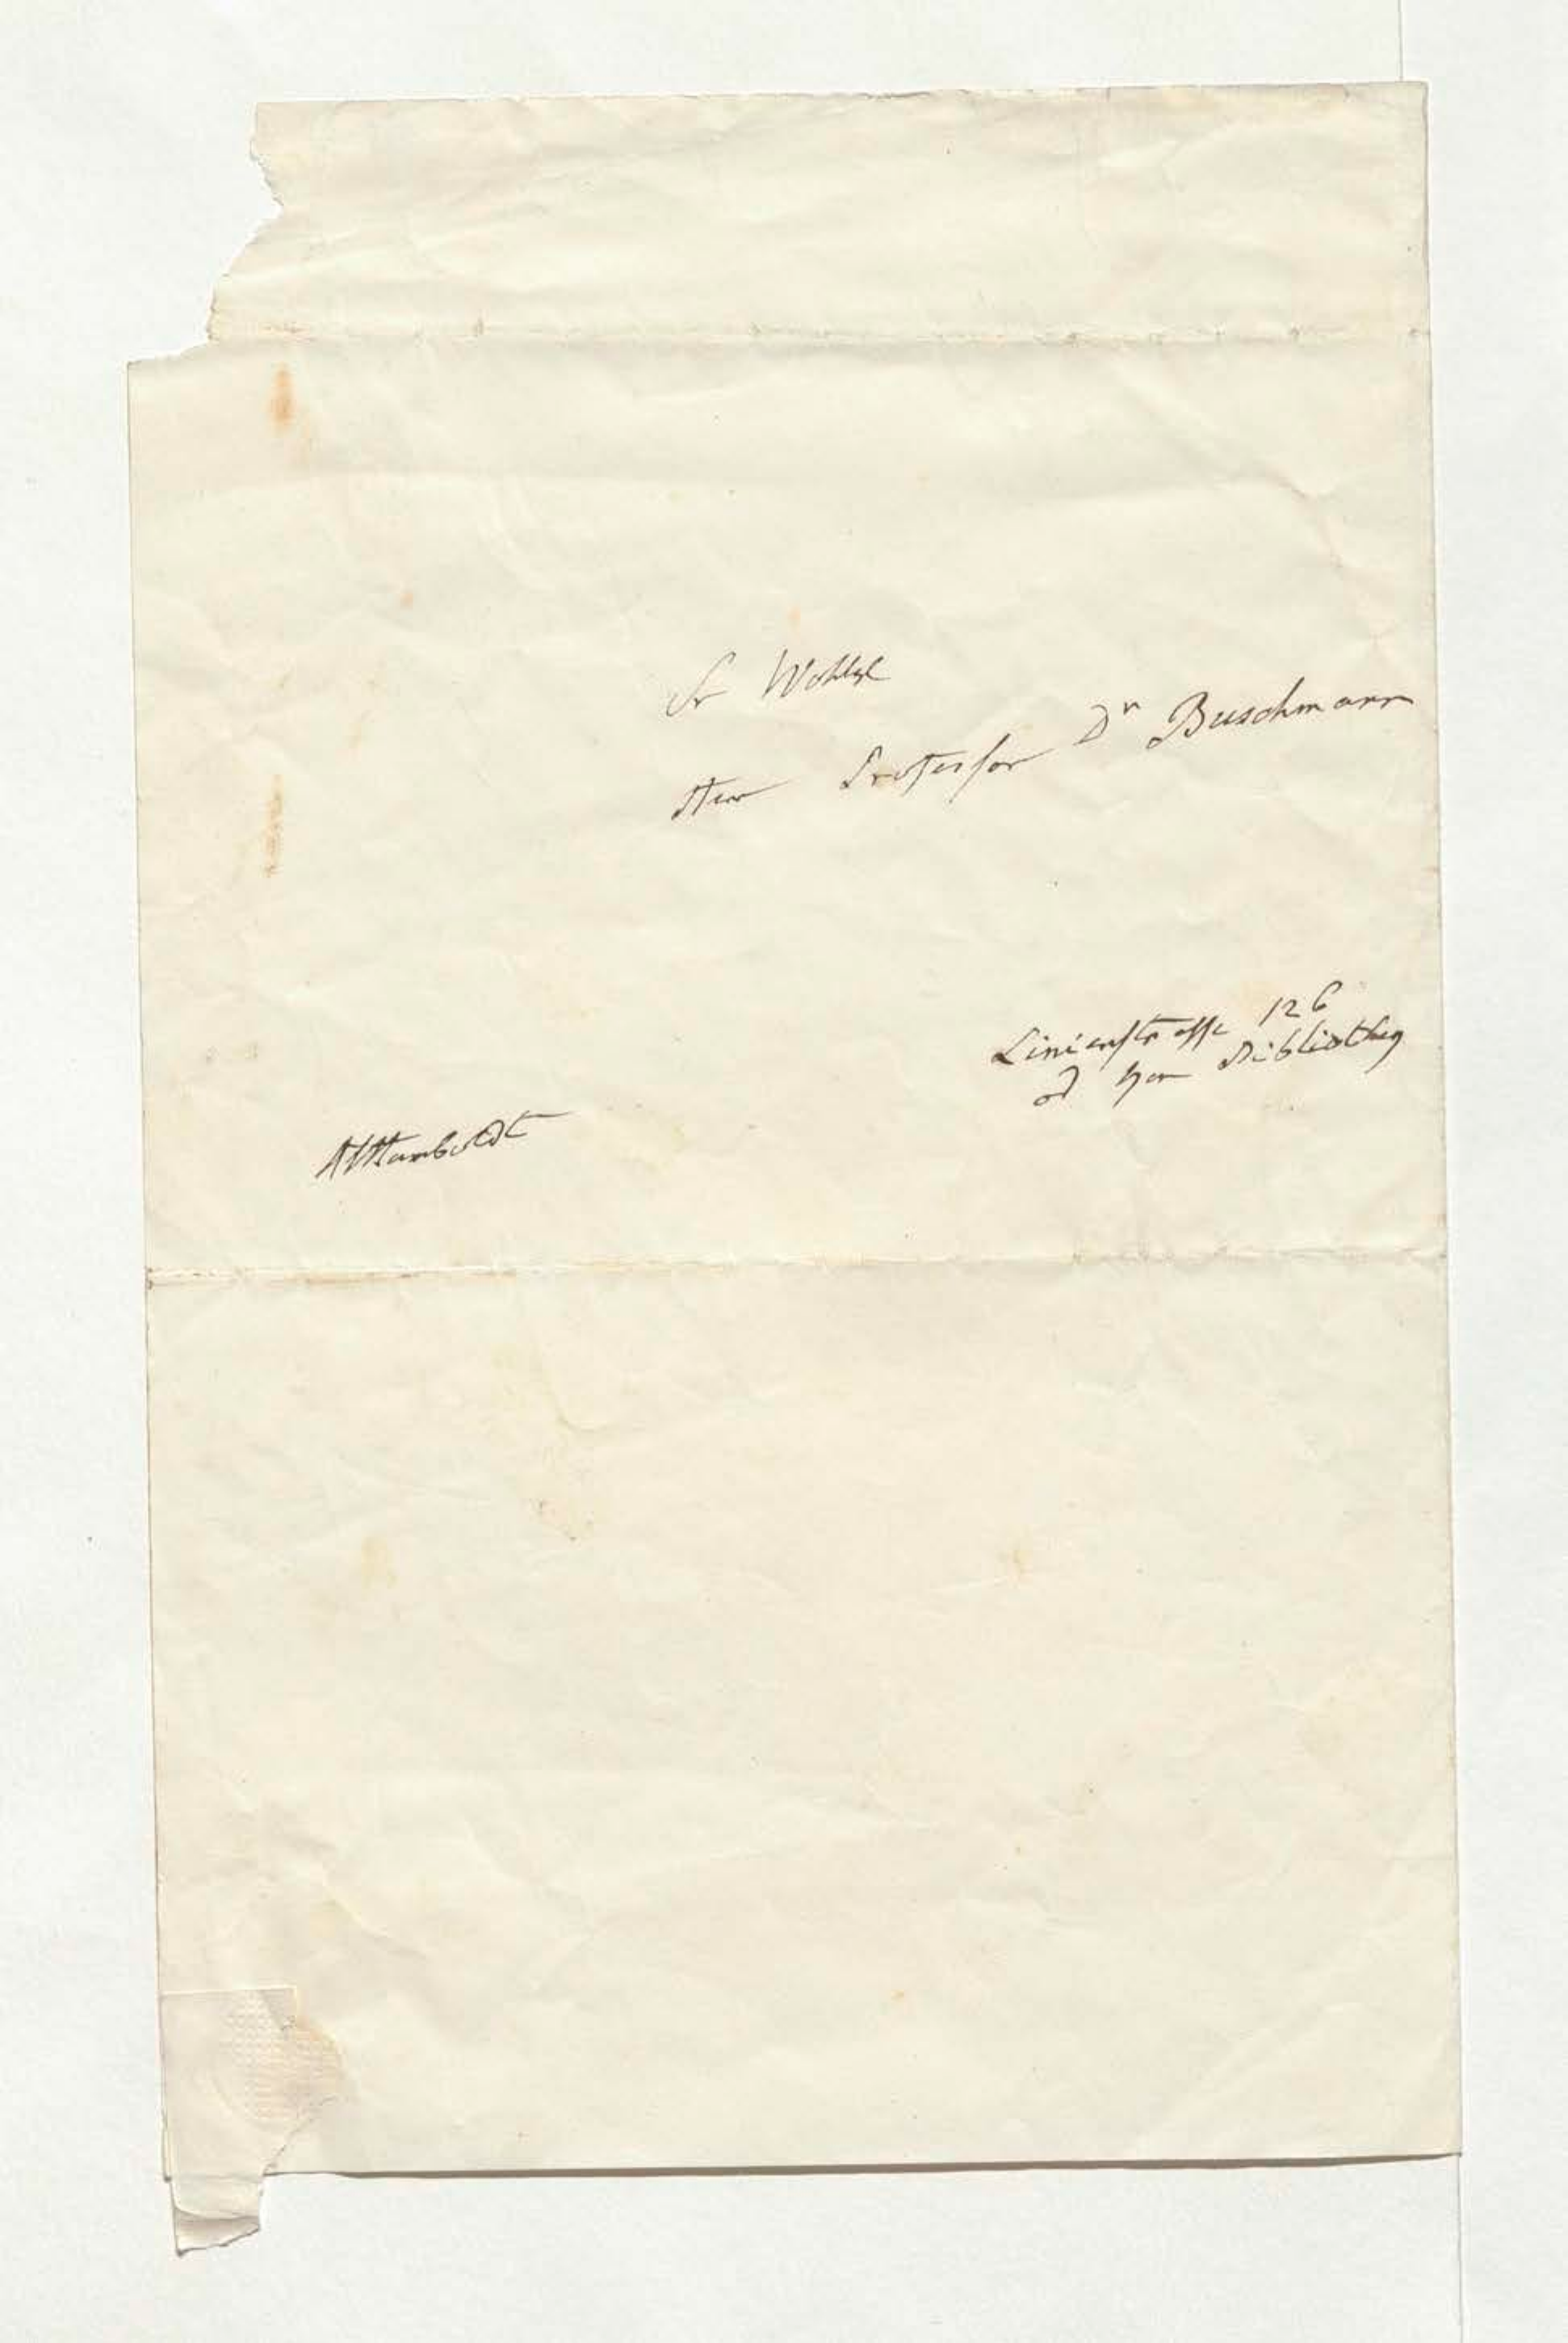 Sr Wohlgl
Herr Professor Dr Buschmann
Linienstrasse 126
od Bibliotheq
AvHumboldt